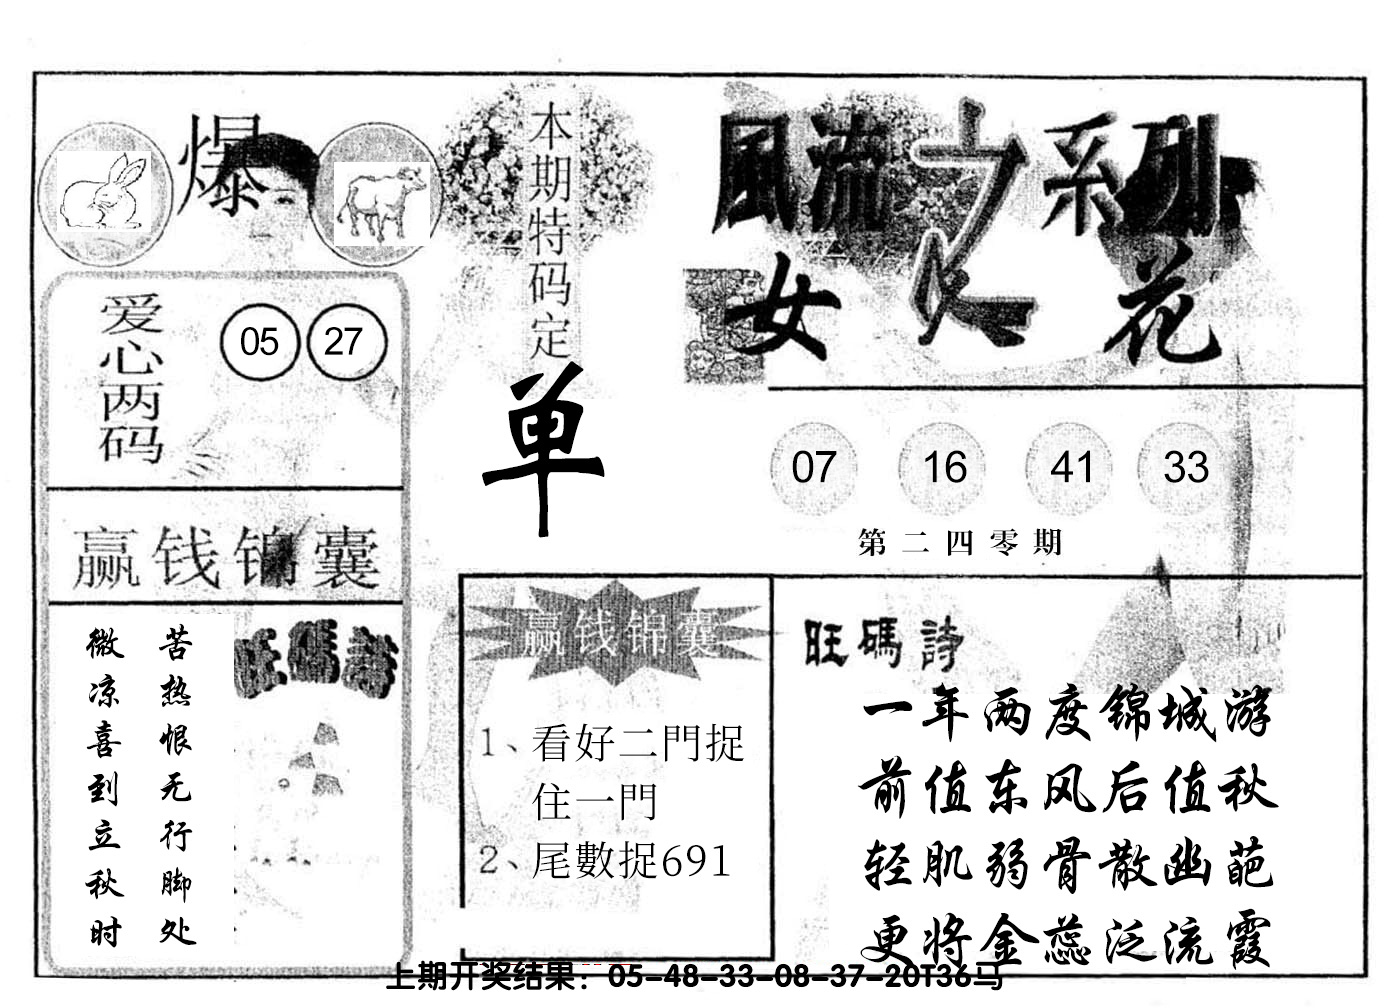 爆
本期特码定
单
風流之系列
女人花
爱心两码
05 27
07 16 41 33
第二四零期
赢钱锦囊
苦热恨无行脚处
微凉喜到立秋时
旺碼詩
赢钱锦囊
1、看好二門捉
住一門
2、尾數捉691
旺碼詩
一年两度锦城游
前值东风后值秋
轻肌弱骨散幽葩
更将金蕊泛流霞
上期开奖结果：05-48-33-08-37-20T36马